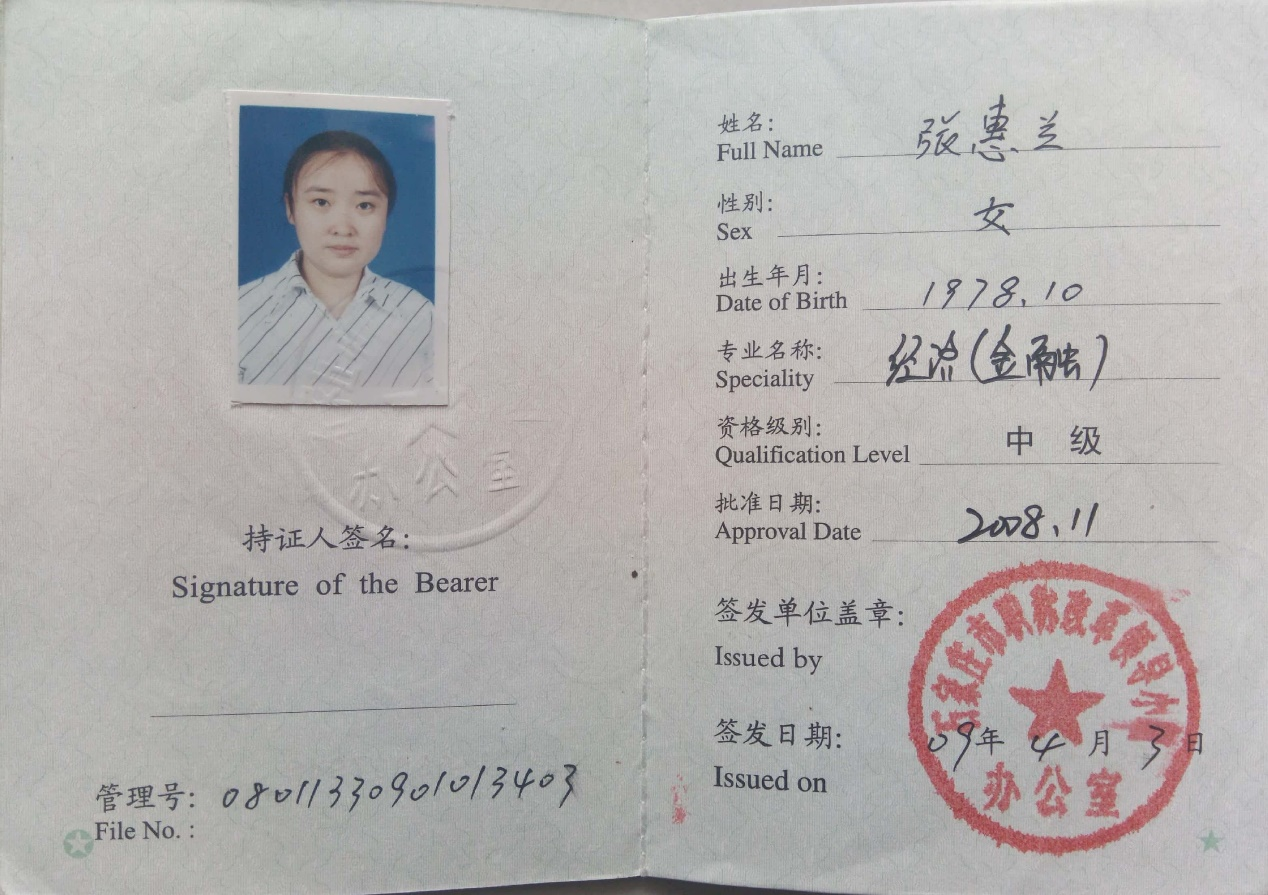 持证人签名:
Signature of the Bearer
管理号: 08011330901013403
File No. :
姓名: 张惠兰
Full Name
性别: 女
Sex
出生年月: 1978.10
Date of Birth
专业名称: 经济(金融)
Speciality
资格级别: 中级
Qualification Level
批准日期: 2008.11
Approval Date
签发单位盖章:
Issued by
石家庄市职称改革领导小组
办公室
签发日期: 09年4月3日
Issued on
办公室